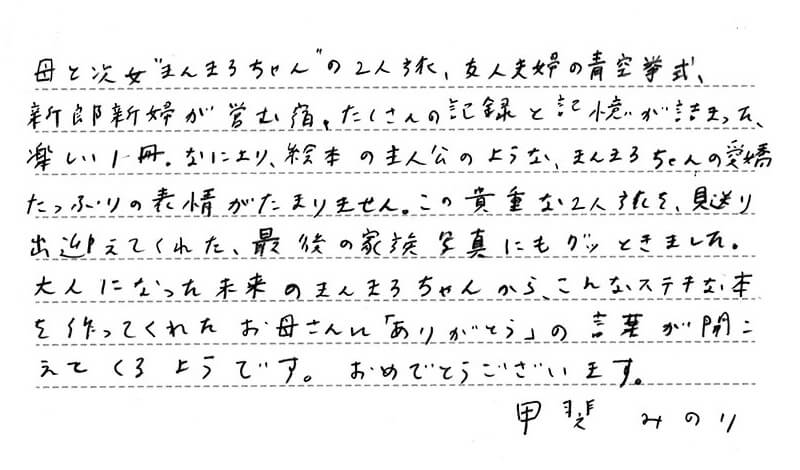 母と次女"まんまろちゃん"の2人旅、友人夫婦の青空挙式、
新郎新婦が営む宿。たくさんの記録と記憶が詰まった、
楽しい1冊。なにより、絵本の主人公のような、まんまろちゃんの愛嬌
たっぷりの表情がたまりません。この貴重な2人旅を、見送り
出迎えてくれた、最後の家族写真にもグッときました。
大人になった未来のまんまろちゃんから、こんなステキな本
を作ってくれたお母さんに「ありがとう」の言葉が聞こ
えてくるようです。おめでとうございます。
甲斐 みのり